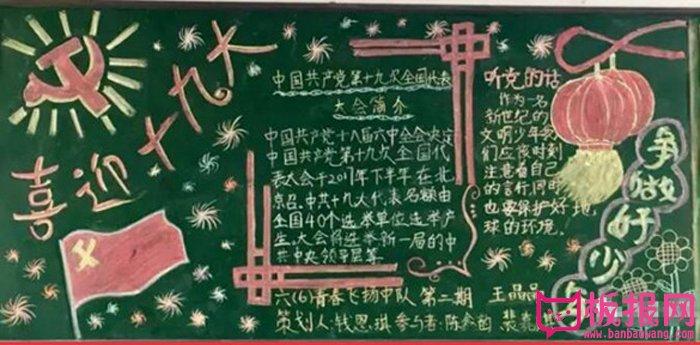 喜迎十九大
中国共产党第十九次全国代表
大会简介
中国共产党十八届六中全会决定
中国共产党第十九次全国代
表大会于2017年下半年在北
京召。中共十九大代表名额由
全国40个选举单位选举产
生。大会将选举新一届的中
共中央领导层等
听党的话
作为一名
新世纪的
文明少年我
们应该时刻
注意着自己
的言行同时
也要保护好地
球的环境。
争做好少
六(6)青春飞扬中队 第二期
王晶晶
策划人:钱恩琪 参与者:陈
板报网
www.banbaowang.com